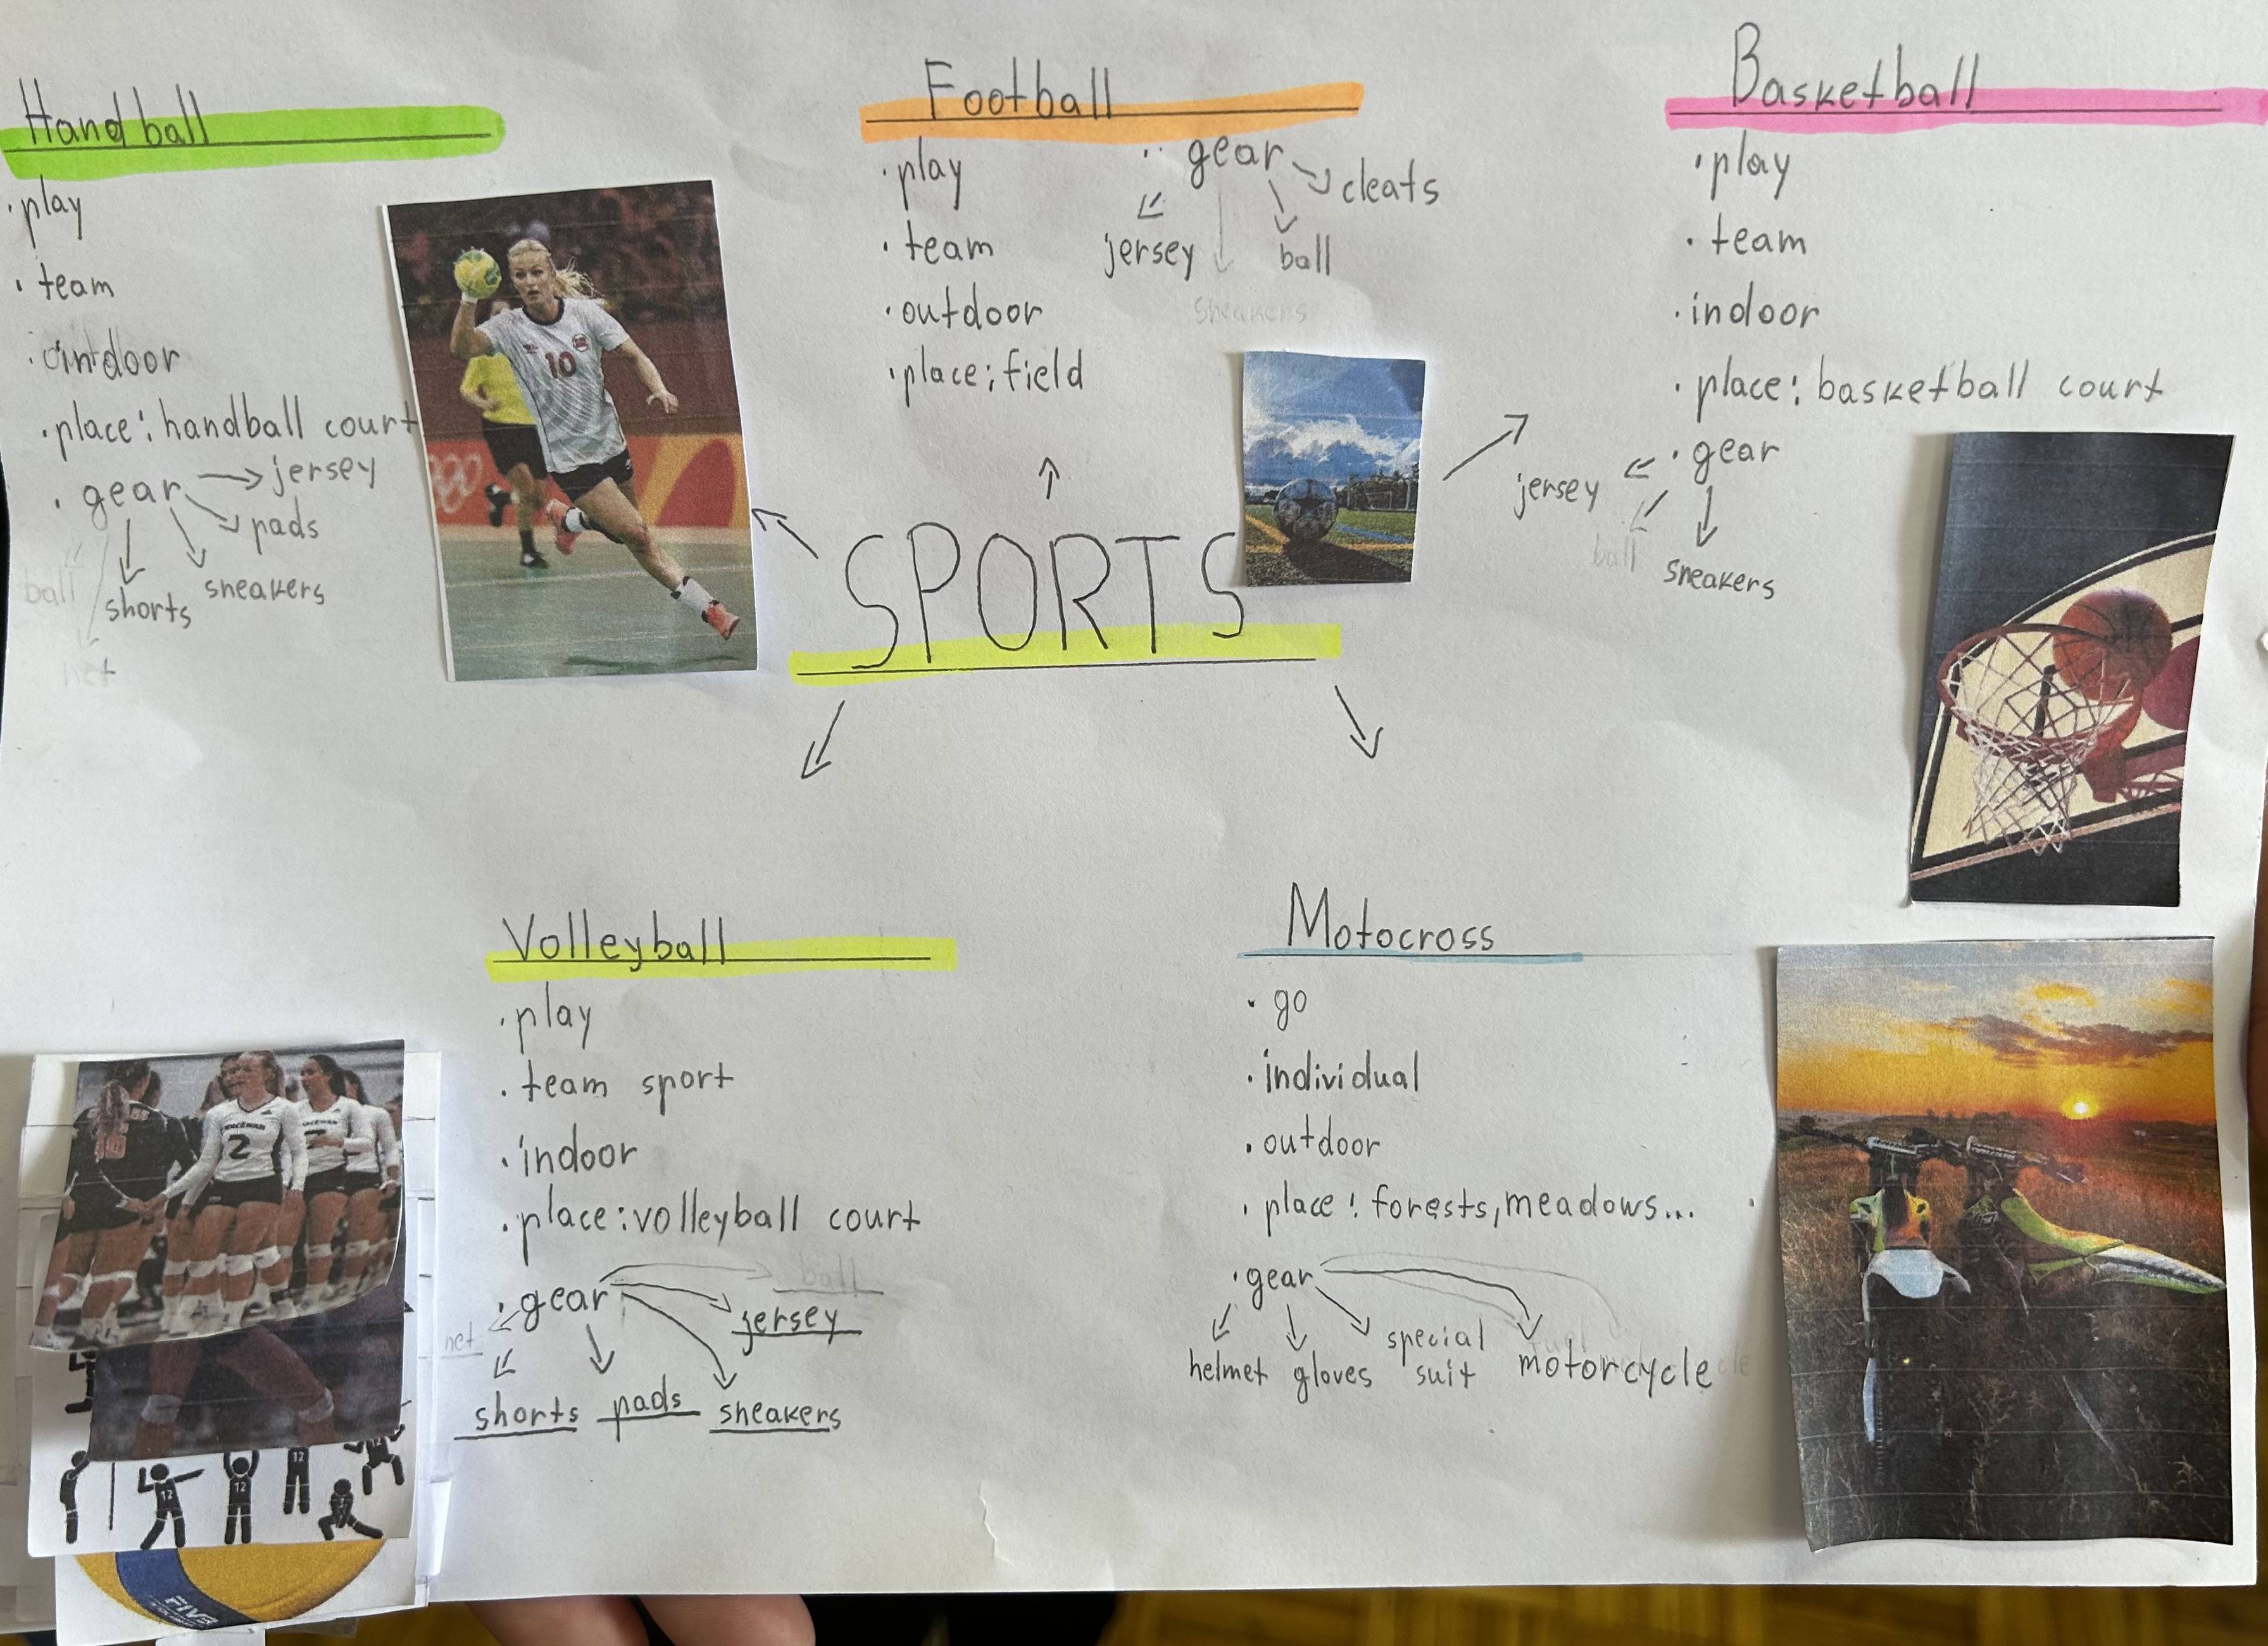 Handball
·play
·team
·indoor
·place: handball court
·gear
jersey
pads
sneakers
shorts
ball
net
10
Football
·play
·team
·outdoor
·place: field
gear
cleats
ball
jersey
sneakers
Basketball
·play
·team
·indoor
·place: basketball court
·gear
jersey
ball
sneakers
SPORTS
Volleyball
·play
·team sport
·indoor
·place: volleyball court
·gear
ball
jersey
net
shorts
pads
sneakers
2
12
12
12
FIVB
Motocross
·go
·individual
·outdoor
·place: forests, meadows...
·gear
helmet
gloves
special
suit
motorcycle